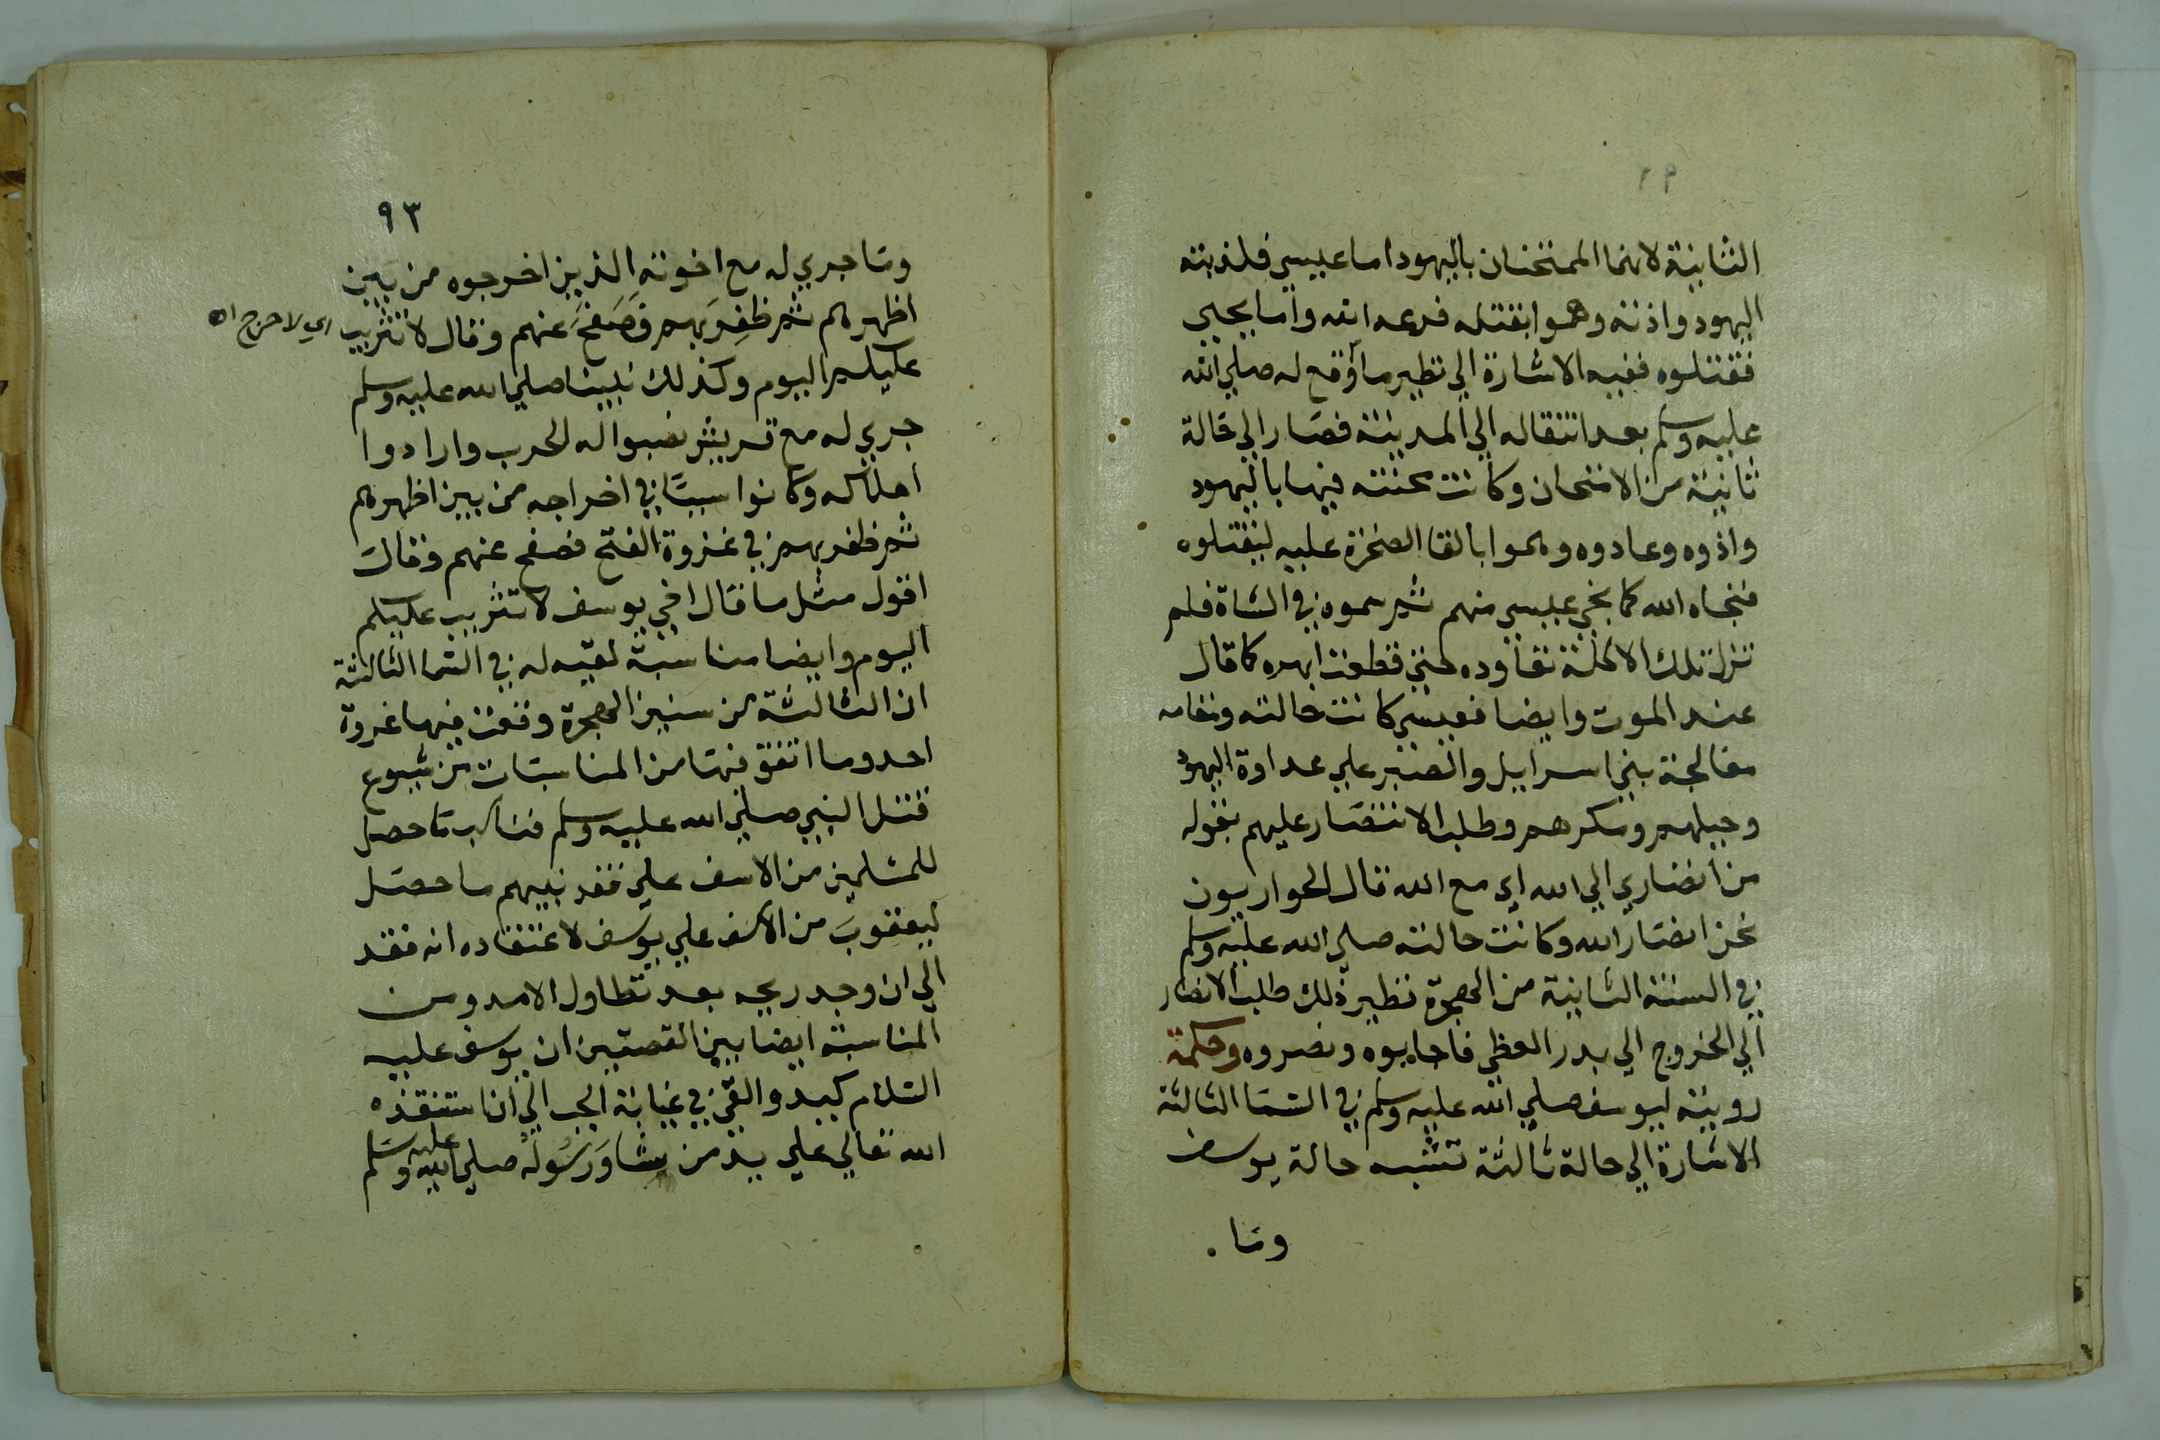 الثانية لانهما الممتحنان باليهود اما عيسي فكذبته
اليهود واذته وهموا بقتله فرفعه الله واما يحيي
فقتلوه ففيه الاشارة الي نظير ما وقع له صلي الله
عليه وسلم بعد انتقاله الي المدينة فصار الي حالة
ثانية من الامتحان وكانت محنته فيها باليهود
واذوه وعادوه وهموا بالقا الصخرة عليه ليقتلوه
فنجاه الله كما نجي عيسي منهم ثم سموه في الشاة فلم
تزل تلك الاكلة تعاوده حتي قطعت ابهره كما قال
عند الموت وايضا فعيسي كانت حالته ومقامه
معالجة بني اسراييل والصبر علي عداوة اليهود
وحيلهم ومكرهم وطلب الانتصار عليهم بقوله
من انصاري الي الله اي مع الله قال الحواريون
نحن انصار الله وكانت حالته صلي الله عليه وسلم
في السنة الثانية من الهجرة نظير ذلك طلب الانصار
الي الخروج الي بدر العظمي فاجابوه ونصروه وحكمة
رويته ليوسف صلي الله عليه وسلم في السما الثالثة
الاشارة الي حالة ثالثة تشبه حالة يوسف
وما
٩٣
وما جري له مع اخوته الذين اخرجوه من بين
اظهرهم ثم ظفر بهم فصفح عنهم وقال لا تثريب
اي لا حرج اه
عليكم اليوم وكذلك نبينا صلي الله عليه وسلم
جري له مع قريش نصبوا له الحرب وارادوا
اهلاكه وكانوا سببا في اخراجه من بين اظهرهم
ثم ظفر بهم في غزوة الفتح فصفح عنهم وقال
اقول مثل ما قال اخي يوسف لا تثريب عليكم
اليوم وايضا مناسبة لقيه له في السما الثالثة
ان الثالثة من سنين الهجرة وقعت فيها غزوة
احد وما اتفق فيها من المناسبات من شيوع
قتل النبي صلي الله عليه وسلم فناسب ما حصل
للمسلمين من الاسف علي فقد نبيهم ما حصل
ليعقوب من الاسف علي يوسف لاعتقاده انه فقد
الي ان وجد ريحه بعد تطاول الامد ومن
المناسبة ايضا بين القصتين ان يوسف عليه
السلام كيد والقي في غيابة الجب الي ان استنقذه
الله تعالي علي يد من يشا ورسوله صلي الله عليه وسلم